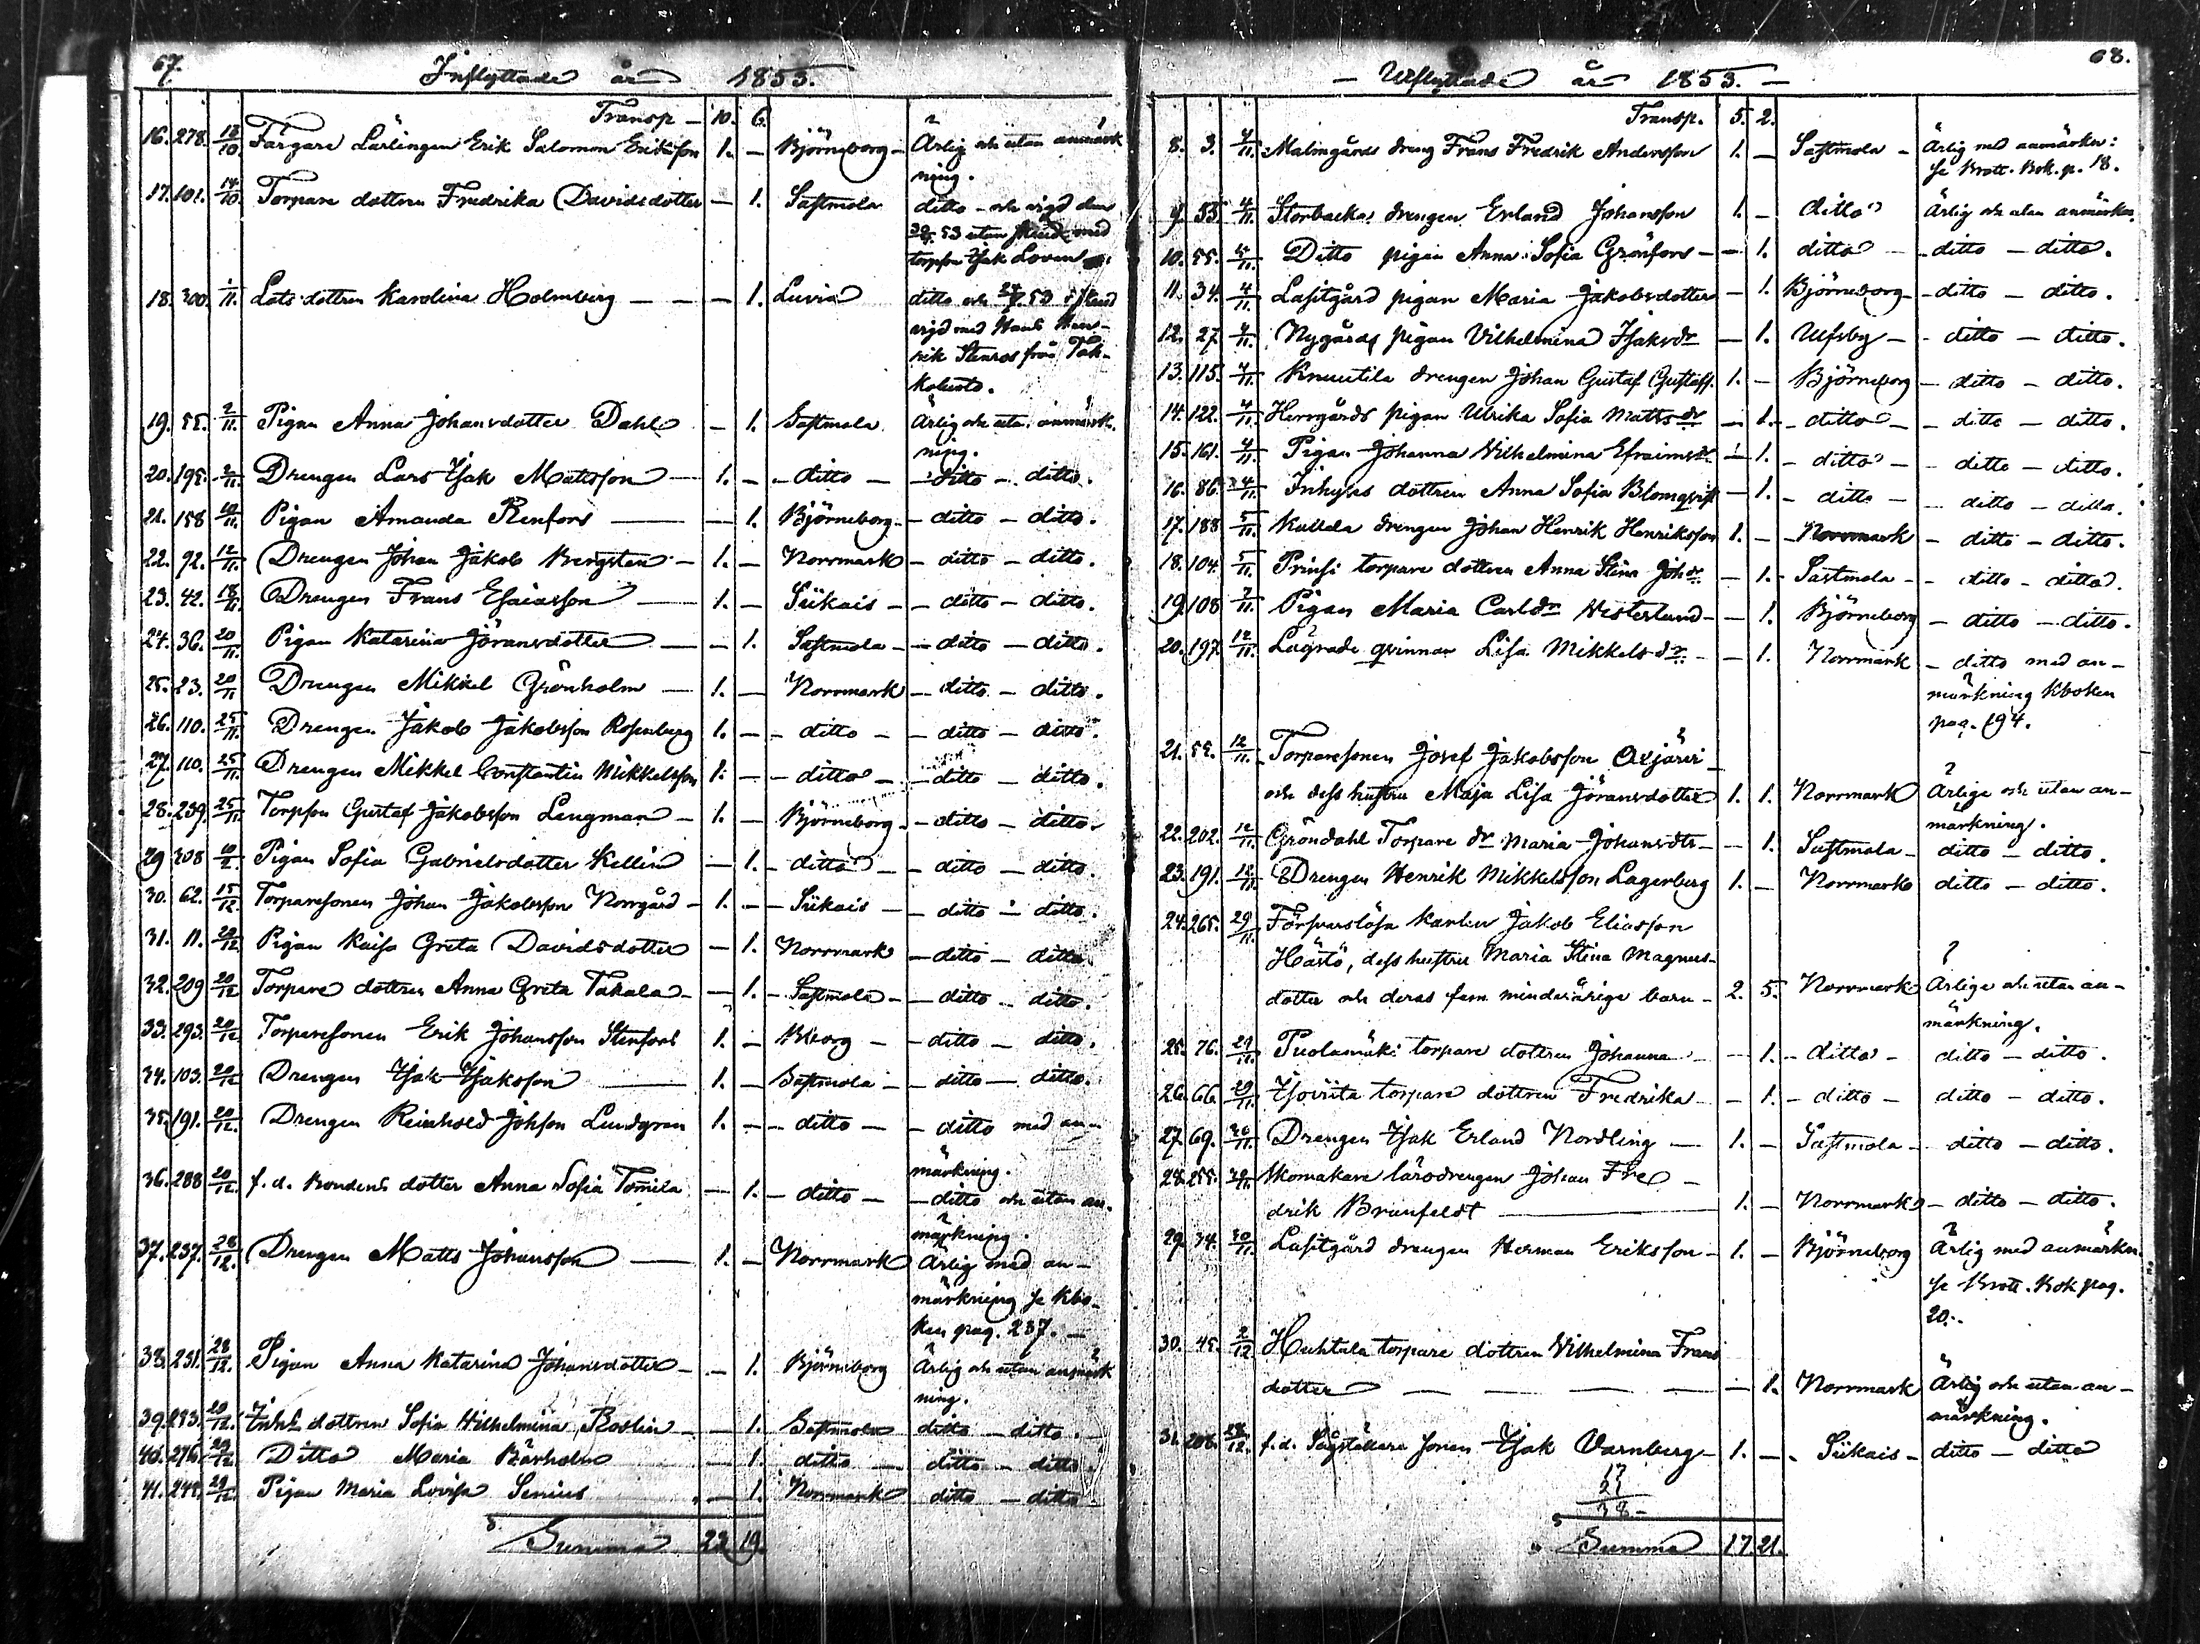 67.
Inflyttade år 1853.
Transp – 10. 6.
16. 278. 13/10 Färgare Lärlingen Erik Salomon Eriksson 1. – Björneborg – Ärlig och utan anmärk
ning.
17. 101. 14/10 Torpare dottren Fredrika Davidsdotter – 1. Sastmola ditto – och vigd den
53 utan med
torpson Isak Loven
18. 300. 1/11. Lots dottren Karolina Holmberg – – – 1. Luvia ditto och 53
vigd med Hen-
rik Stenros från Tak-
kolusto.
19. 55. 2/11. Pigan Anna Johansdotter Dahl – 1. Sastmola Ärlig och utan anmärk-
ning.
20. 195. 2/11. Drengen Lars Isak Mattsson – 1. – – ditto – – ditto – ditto.
21. 158 10/11. Pigan Amanda Renfors – – 1. Björneborg – – ditto – ditto.
22. 92. 12/11. Drengen Johan Jakob Bergsten – 1. – Norrmark – ditto – ditto.
23. 42. 18/11. Drengen Frans Esaiasson – 1. – Siikais – – ditto – ditto.
24. 36. 20/11. Pigan Katarina Göransdotter – – 1. Sastmola – – ditto – ditto.
25. 23. 20/11 Drengen Mikael Grönholm – 1. – Norrmark – ditto – ditto.
26. 110. 25/11. Drengen Jakob Jakobsson Rosenberg 1. – – ditto – – ditto – ditto.
27. 110. 25/11 Drengen Mikkel Constantin Mikkelsson 1. – – ditto – – ditto – ditto.
28. 239. 25/11 Torpson Gustaf Jakobsson Lengman – 1. – Björneborg – – ditto – ditto.
29 308 10/ Pigan Sofia Gabrielsdotter Kellin – 1. – ditto – – ditto – ditto.
30. 62. 15/12. Torparesonen Johan Jakobsson Norrgård – 1. – – Siikais – – ditto – ditto.
31. 11. 20/12 Pigan Kaisa Greta Davidsdotter – 1. Norrmark – ditto – ditto
32. 209 20/12 Torpare dottren Anna Greta Takala – – 1. – Sastmola – – ditto – ditto.
33. 293. 20/12 Torparesonen Erik Johansson Stenfors 1. – Bborg – – ditto – ditto.
34. 103. 20/12 Drengen Isak Isaksson – 1. – Sastmola – – ditto – ditto.
35. 191. 20/12. Drengen Reinhold Johsson Lundgren 1. – – ditto – – ditto med an-
märkning.
36. 288 20/12. f. d. Bondens dotter Anna Sofia Tomila – 1. – ditto – – ditto och utan an-
märkning.
37. 237. 28/12. Drengen Matts Johansson – 1. – Norrmark Ärlig med an-
märkning se Kbo-
ken pag. 237. –
38. 231. 28/12. Pigan Anna Katarina Johansdotter – – 1. Björneborg Ärlig och utan anmärk
ning.
39. 283. 29/12. Inhs dottren Sofia Wilhelmina Roslin – – 1. Sastmola ditto – ditto.
40. 276. 29/12 Ditto Maria Björkholm – 1. ditto – ditto – ditto.
41. 244. 29/12. Pigan Maria Lovisa Senius – 1. Norrmark ditto – ditto
Summa 23. 19.
68.
– Utflyttade år 1853. –
Transp. 5. 2.
8. 3. 4/11. Malmgårds dreng Frans Fredrik Andersson 1. – Sastmola – Ärlig med anmärkn:
se Brott. Bok. p. 18.
9. 55. 4/11. Storbacka drengen Erland Johansson 1. – ditto Ärlig och utan anmärkn.
10. 55. 4/11. Ditto pigan Anna Sofia Granfors – – 1. ditto – ditto – ditto.
11. 34. 4/11. Lasitgård pigan Maria Jakobsdotter – 1. Björneborg – ditto – ditto.
12. 27 4/11. Nygårds pigan Vilhelmina Isaksdr – 1. Ulfsby – – ditto – ditto.
13. 115. 4/11. Knuutila drengen Johan Gustaf Gustafss. 1. – Björneborg – ditto – ditto.
14. 122. 4/11. Herrgårds pigan Ulrika Sofia Mattsdr – 1. – ditto – – ditto – ditto.
15. 161. 4/11. Pigan Johanna Vilhelmina Efraimsdr – 1. – ditto – – ditto – ditto.
16. 86. 4/11. Inhyses dottren Anna Sofia Blomqvist – 1. – ditto – ditto – ditto.
17. 188 5/11. Kullda drengen Johan Henrik Henriksson 1. – – Norrmark – ditto – ditto.
18. 104. 5/11. Prinsi torpare dottren Anna Stina Johdr – 1. – Sastmola – – ditto – ditto.
19. 108 7/11. Pigan Maria Carldr Westerlund – – 1. Björneborg – ditto – ditto.
20. 197. 12/11. Lägrade qvinnan Lisa Mikkelsdr – – 1. Norrmark – ditto med an-
märkning Kboken
pag. 194.
21. 55. 12/11. Torparesonen Josef Jakobsson Oxjärvi
och dess hustru Maja Lisa Göransdotter 1. 1. Norrmark Ärlige och utan an-
märkning.
22. 202. 12/11. Gröndahl Torpare dr Maria Johansdtr – – 1. Sastmola – ditto – ditto.
23. 191. 12/11. Drengen Henrik Mikkelsson Lagerberg 1. – Norrmark ditto – ditto.
24. 265. 29/11. Försvarslösa karlen Jakob Eliasson
Härtö, dess hustru Maria Stina Magnus-
dotter och deras fem minderåriga barn – 2. 5. Norrmark Ärlige och utan an-
märkning.
25. 76. 29/11. Puolamäki torpare dottren Johanna – – 1. – ditto – ditto – ditto.
26. 66. 29/11. Isoviita torpare dottren Fredrika – – 1. – ditto – ditto – ditto.
27. 69. 30/11. Drengen Isak Erland Nordling – 1. – Sastmola – ditto – ditto.
28. 255. Skomakare lärodrengen Johan Fre –
drik Branfeldt – 1. – Norrmark – ditto – ditto.
29. 34. 30/11. Lasitgård drengen Herman Eriksson – 1. – Björneborg Ärlig med anmärkn.
se Brott. Bok pag.
20. –
30. 45. 2/12 Huhtala torpare dottren Vilhelmina Frans
dotter – – – – – – 1. Norrmark Ärlig och utan an-
märkning.
31. 206. 28/12. f. d. Sågställare sonen Isak Varnberg – 1. – – Siikais – ditto – ditto
17
21
38 –
Summa 17. 21.